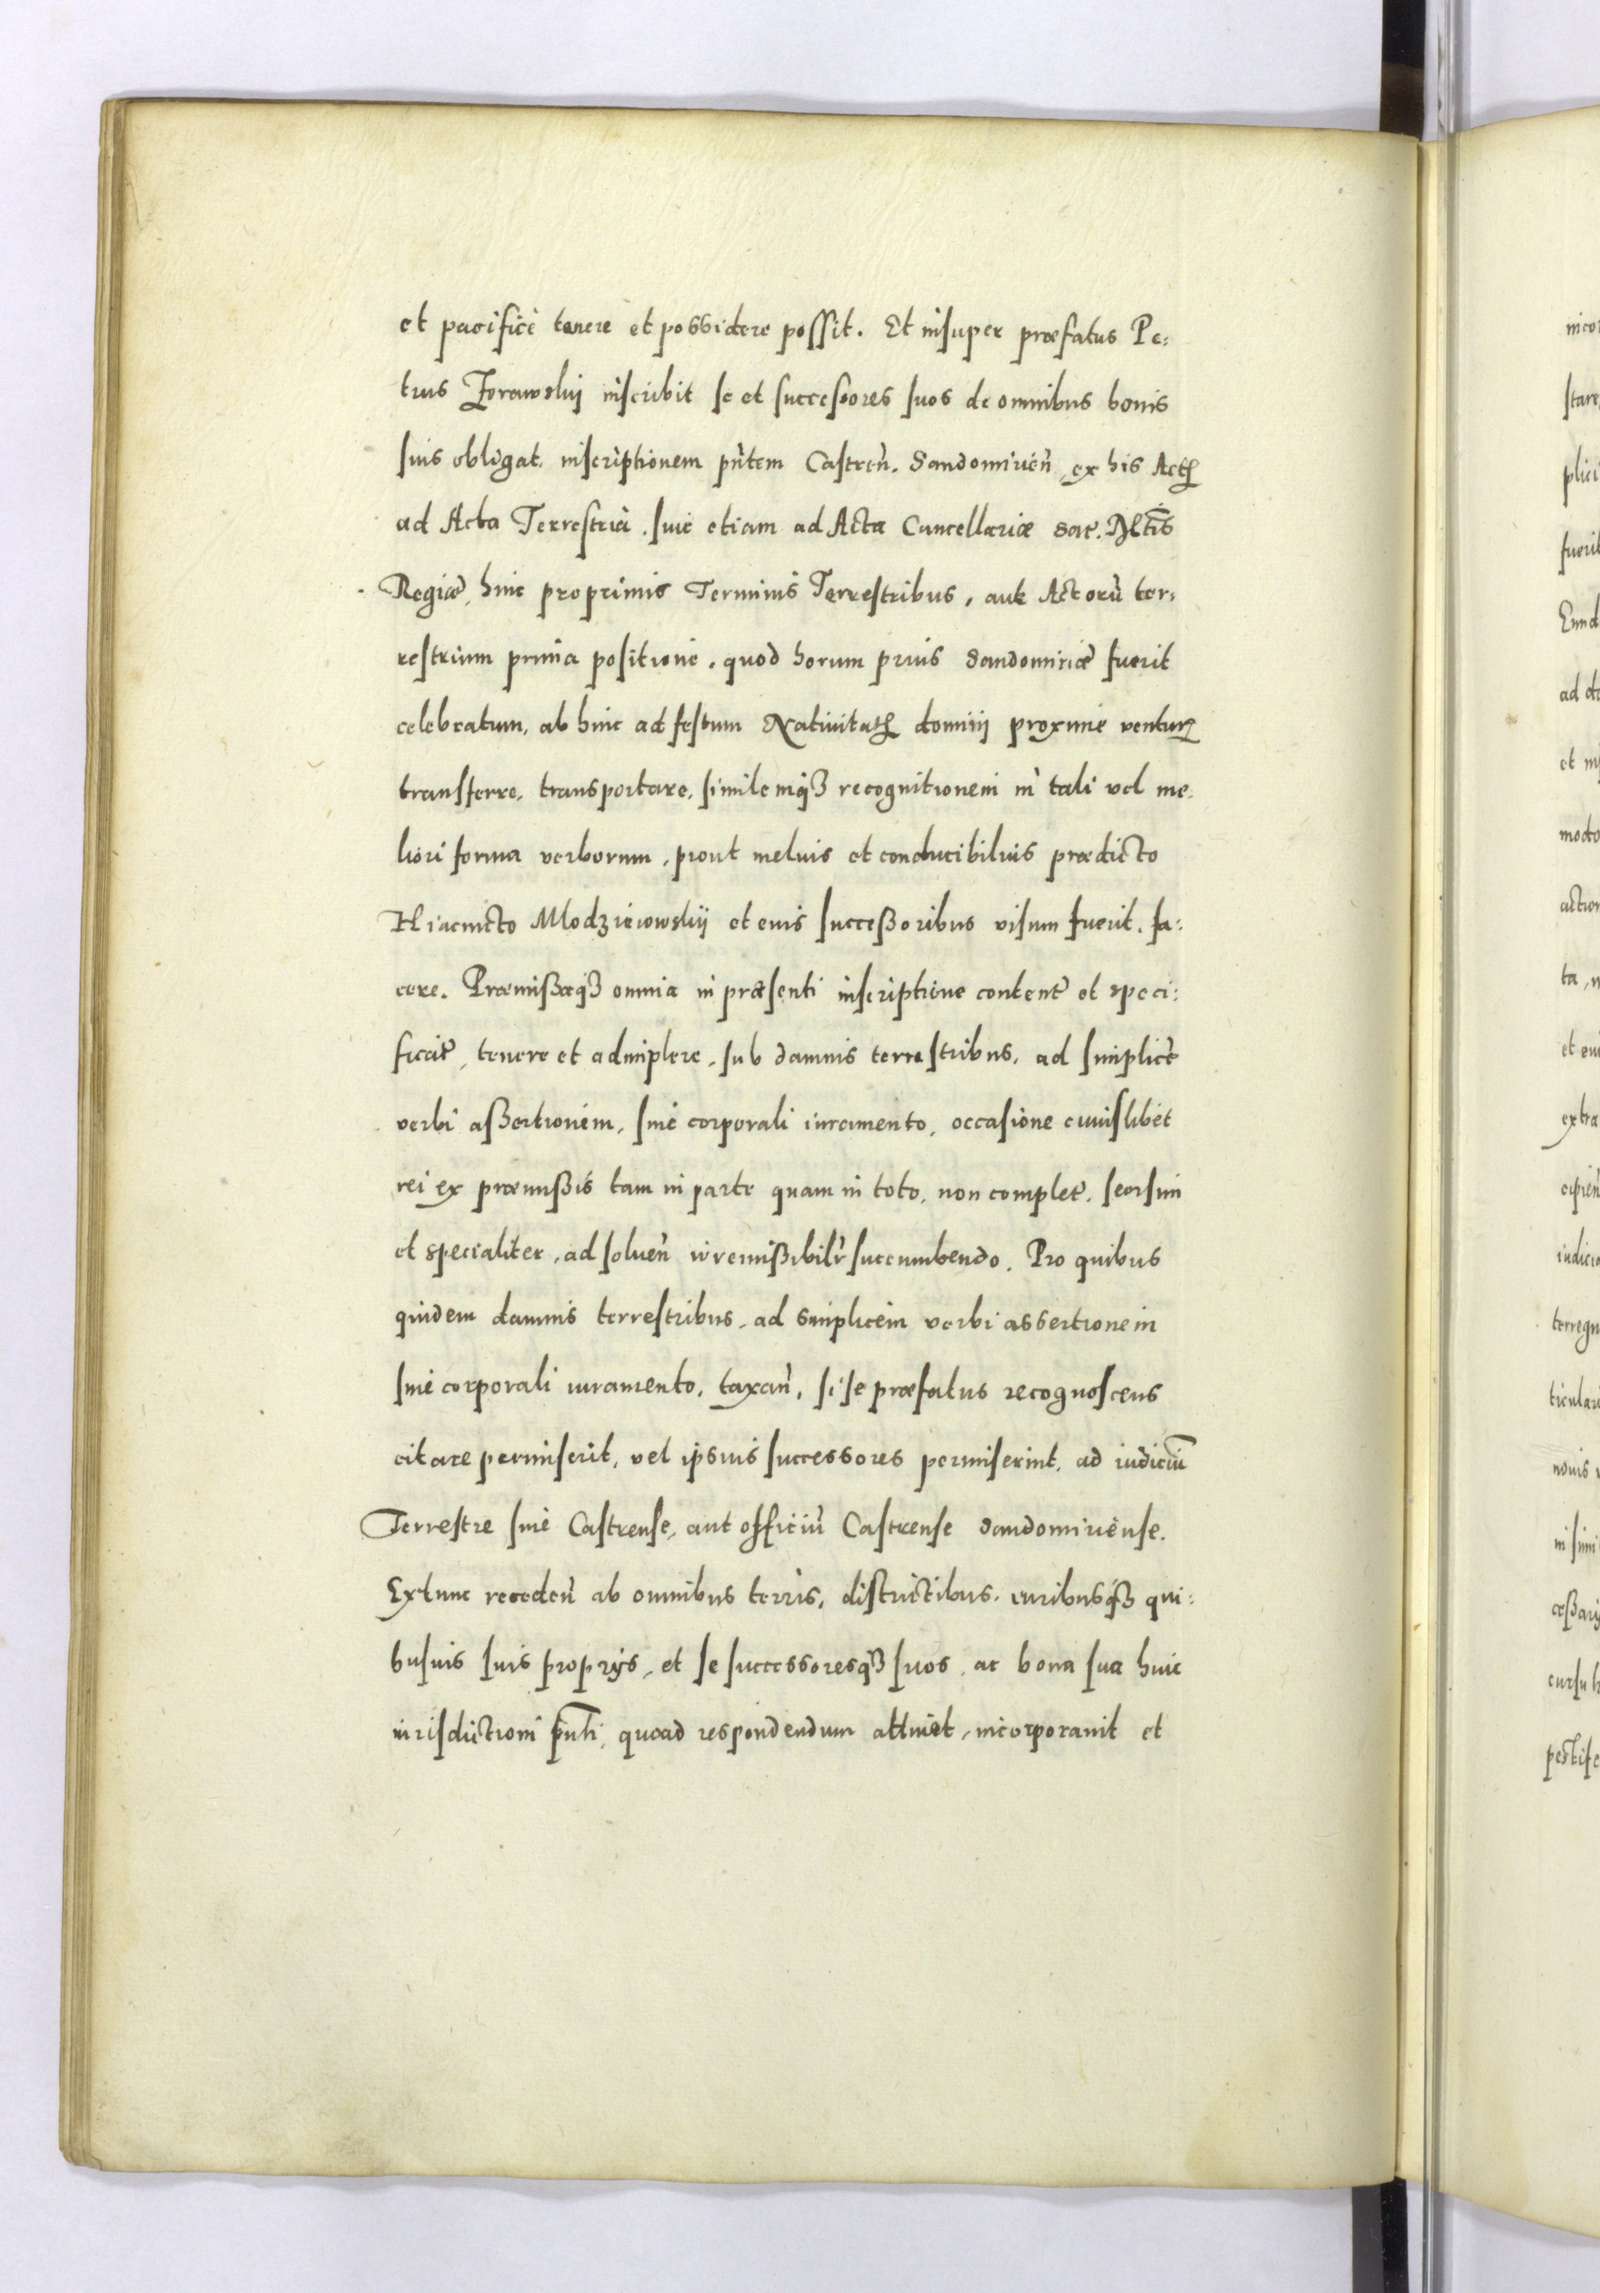 et pacifice tenere et possidere possit. Et insuper præfatus Pe:
trus Zorawskij inscribit se et successores suos de omnibus bonis
suis obligat. inscriptionem pñtem Castreñ. Sandomirieñ ex his Actis
ad Acta Terrestria, siue etiam ad Acta Cancellariæ Sac. Mtis
Regiæ, hinc pro primis Terminis Terrestribus, aut Actorũ ter:
restrium prima positione, quod horum prius Sandomiriæ fuerit
celebratum, ab hinc ad festum Natiuitatis domini proxime venturum
transferre, transportare, similemqʒ recognitionem in tali vel me:
liori forma verborum, prout melius et conducibilius prædicto
Hiacincto Mlodzieiowskij et eius successoribus visum fuerit, fa:
cere. Præmissaqʒ omnia in præsenti inscriptione content̃ et speci:
ficat̃, tenere et adimplere, sub damnis terrestribus, ad simplicẽ
verbi assertionem, sine corporali iuramento, occasione cuiuslibet
rei ex præmissis tam in parte quam in toto, non complet̃, seorsim
et specialiter, ad soluen̄ irremissibilr̃ succumbendo. Pro quibus
quidem damnis terrestribus, ad simplicem verbi assertionem
sine corporali iuramento, taxan̄, si se præfatus recognoscens
citare permiserit, vel ipsius successores permiserint, ad iudiciũ
Terrestre siue Castrense, aut officiũ Castrense Sandomiriense.
Extunc receden̄ ab omnibus terris, districtibus, iuribusqʒ qui:
busuis suis proprijs, et se successoresqʒ suos, ac bona sua huic
iurisdictioni pñti, quoad respondendum attinet, incorporauit et